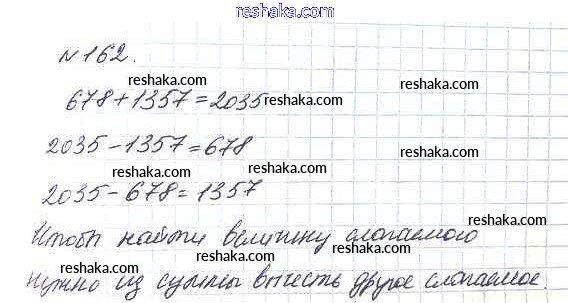 reshaka.com
№162.
reshaka.com
reshaka.com
678+1357=2035
reshaka.com
2035-1357=678
reshaka.com
reshaka.com
2035-678=1357
reshaka.com
Чтобы найти величину слагаемого
reshaka.com
reshaka.com
нужно из суммы вычесть другое слагаемое.
reshaka.com